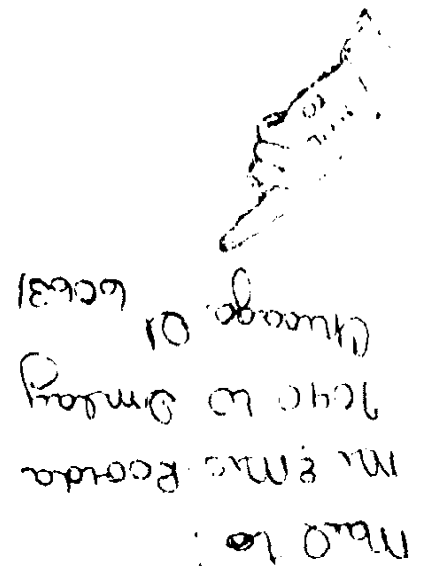 Mail to:
Mr & Mrs Roorda
7040 W Imlay
Chicago Il 60631